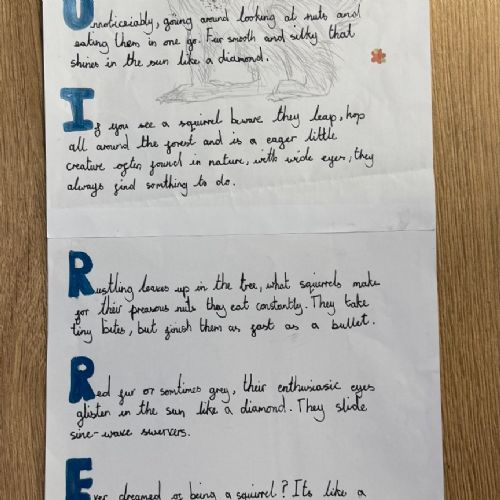 Unnoticeiably, going around looking at nuts and
eating them in one go. Fur smooth and silky that
shines in the sun like a diamond.
If you see a squirrel beware they leap, hop
all around the forest and is a eager little
creature often found in nature, with wide eyes, they
always find somthing to do.
Rustling leaves up in the tree, what squirrels make
for their prearous nuts they eat constantly. They take
tiny bites, but finish them as fast as a bullet.
Red fur or somtimes grey, their enthusiasic eyes
glisten in the sun like a diamond. They slide
sine-wave swervers.
Ever dreamed of being a squirrel? Its like a